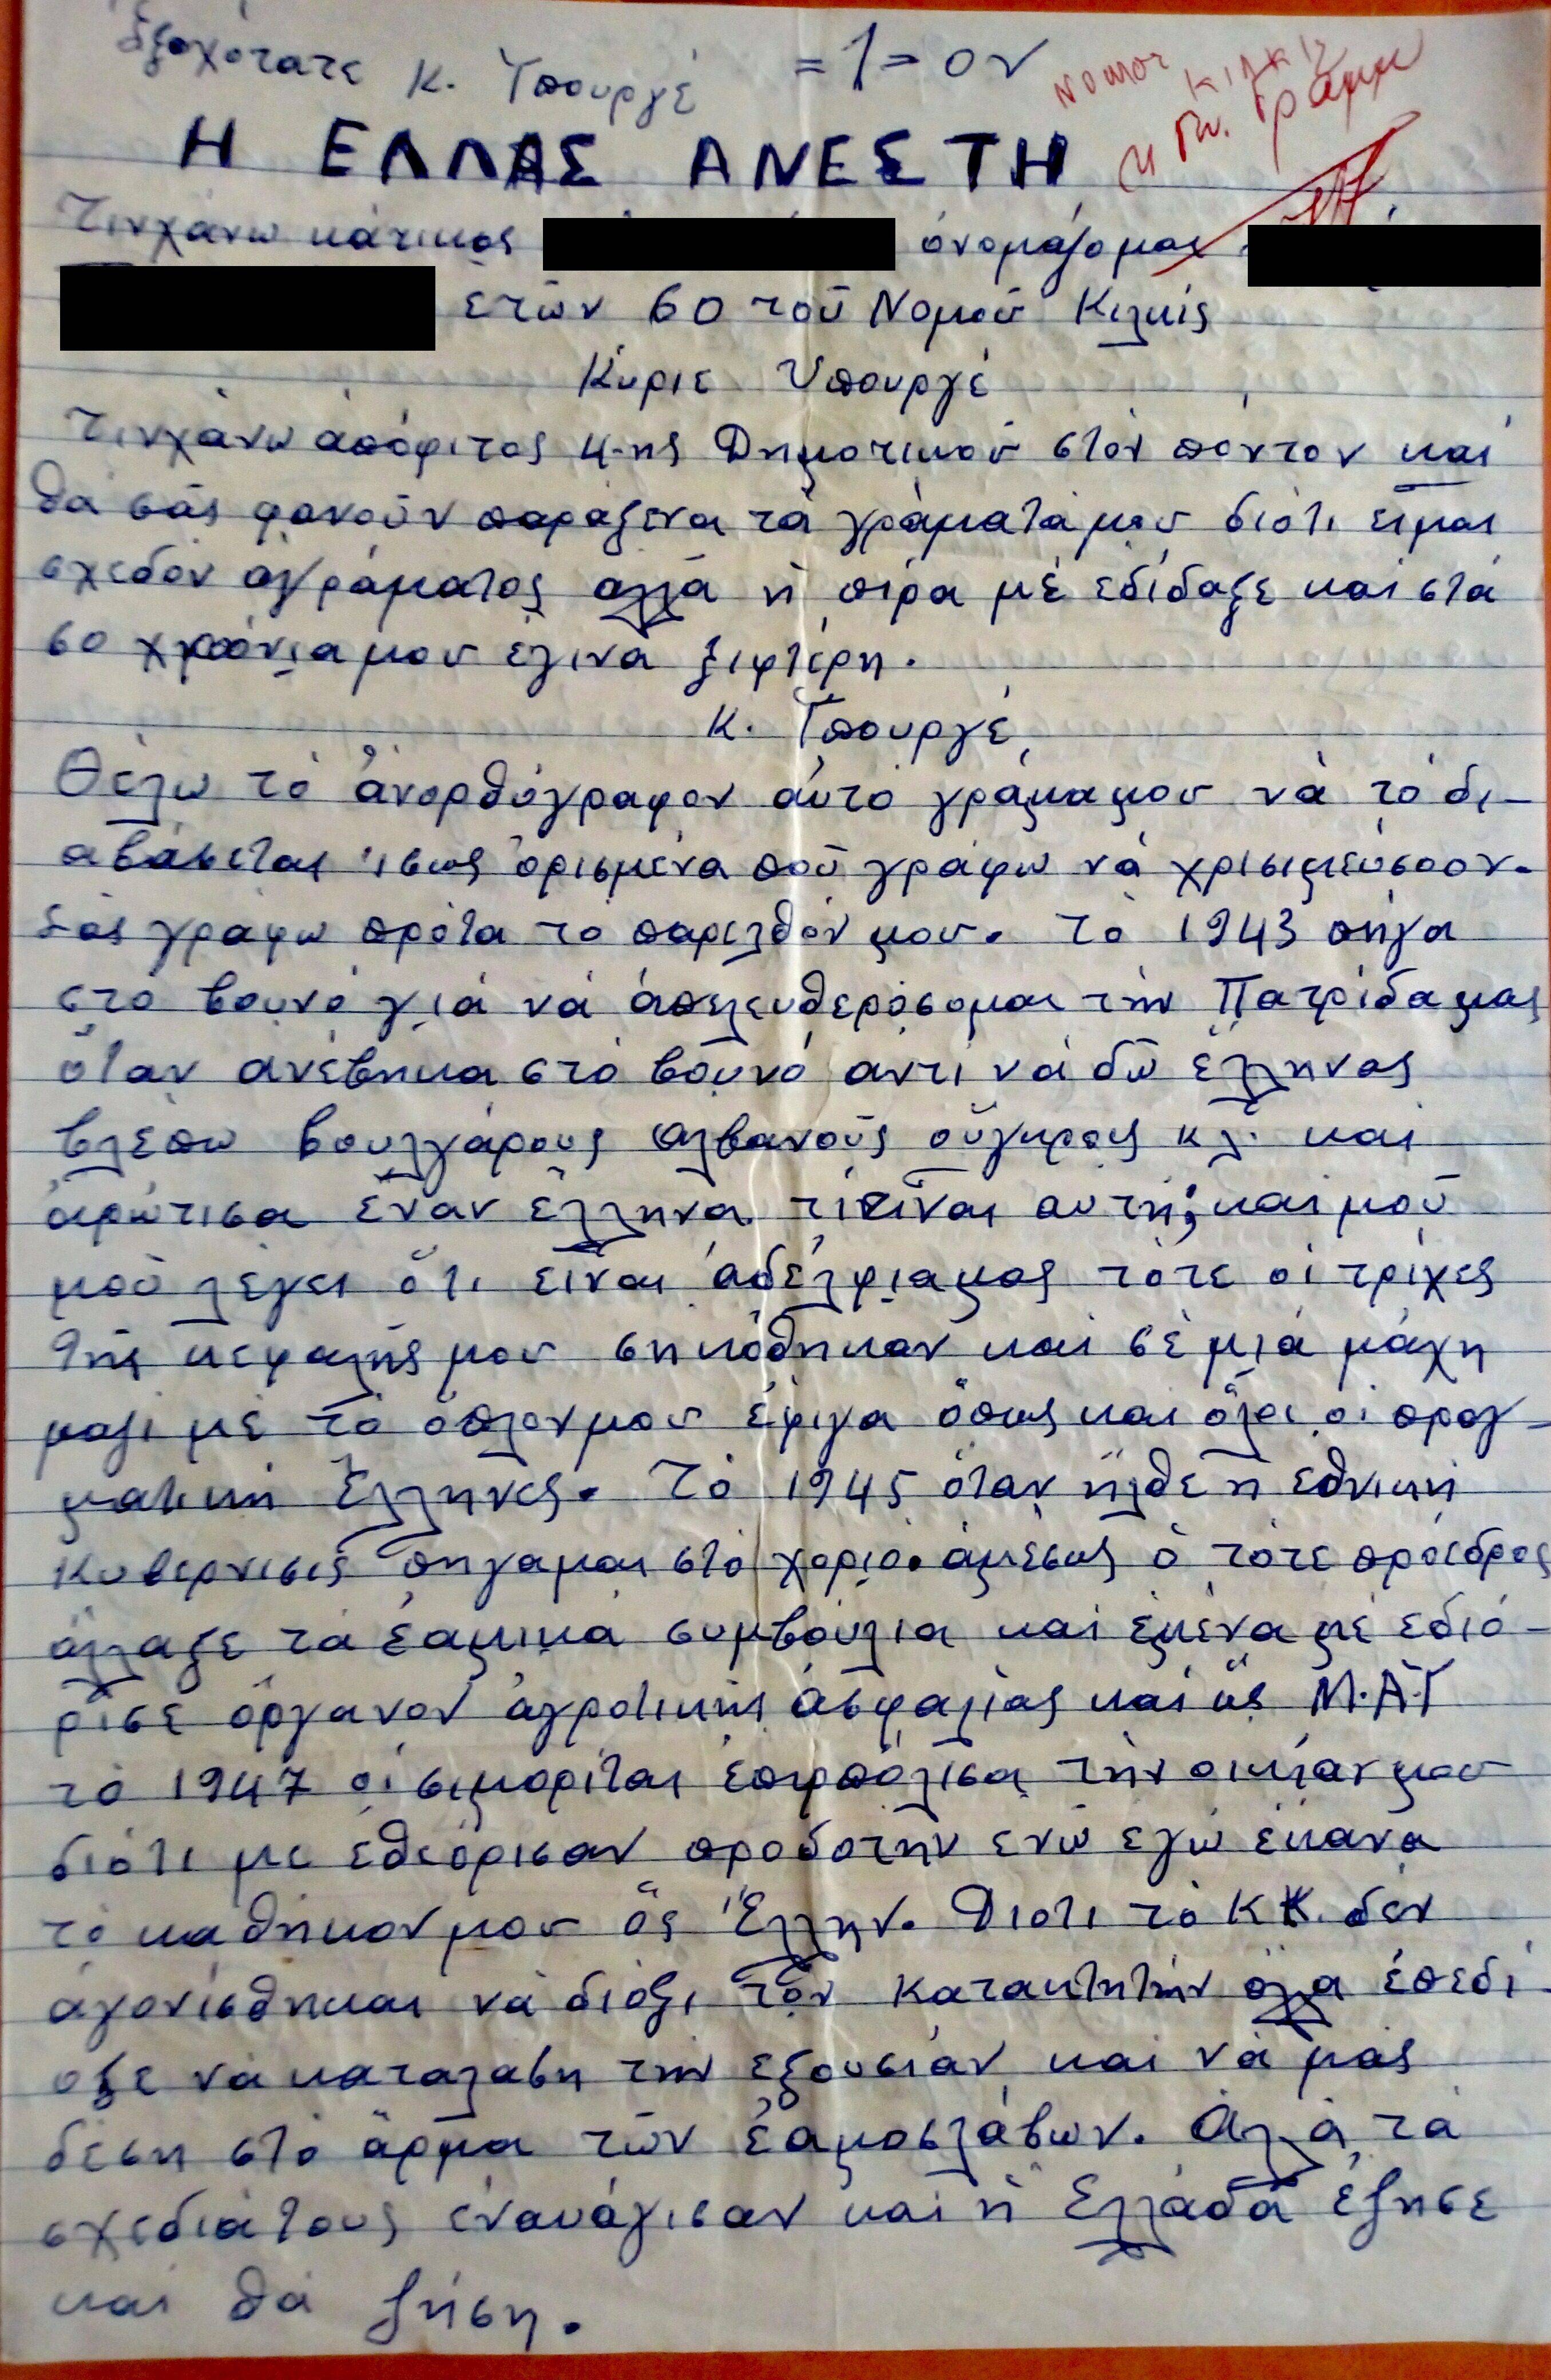 Εξοχότατε κ. Υπουργέ =1=ον
Νομος Κιλκίς
Η ΕΛΛΑΣ ΑΝΕΣΤΗ
Τινχάνω κάτικος ονομάζομαι
ετών 60 τού Νομού Κιλκίς
Κύριε Υπουργέ
Τινχάνω απόφιτος 4-ης Δημοτικού στόν πόντον καί
θά σάς φανούν παράξενα τά γράματά μου διότι είμαι
σχεδόν αγράματος αλλά ή πίρα μέ εδίδαξε καί στά
60 χρόνια μου έγινα ξιφτέρη.
Κ. Υπουργέ
Θέλω τό ανορθόγραφον αυτό γράμα μου νά τό δι-
αβάσεται ίσως ορισμένα πού γράφω νά χρισιμεύσουν.
Σάς γράφω πρότα τό παρελθόν μου. Τό 1943 πήγα
στό βουνό γιά νά απελευθερόσομαι τήν Πατρίδα μας
όταν ανέβηκα στό βουνό αντί νά δώ έλληνας
βλέπω βουλγάρους αλβανούς ούγκρους κλ. καί
αρώτισα έναν έλληνα τί είναι αυτή; καί μού
μού λέγει ότι είναι αδέλφια μας τότε οί τρίχες
τής κεφαλής μου σηκόθηκαν καί σέ μιά μάχη
μαζί μέ τό όπλον μου έφιγα όπως καί όλοι οί πραγ-
ματική Έλληνες. Τό 1945 όταν ήλθε η εθνική
Κυβερνισις πήγαμαι στό χοριό. αμέσως ό τότε πρόεδρος
άλλαξε τά εαμικά συμβούλια καί εμένα μέ εδιό-
ρισε όργανον αγροτικής ασφαλίας καί ώς Μ.Α.Υ
τό 1947 οί σιμορίται επιρπόλισα τήν οικίαν μου
διότι με εθεόρισαν προδότην ενώ εγώ έκανα
τό καθήκον μου ώς Έλλην. Διότι τό ΚΚ. δέν
αγονίσθηκαι νά διόξι τόν κατακτητήν αλλα επεδί
οξε νά καταλαβη τήν εξουσίαν καί νά μάς
δέση στό άρμα τών εαμοσλάβων. Αλλά τά
σχεδιά τους εναυάγισαν καί ή Ελλάδα έζησε
καί θά ζήση.